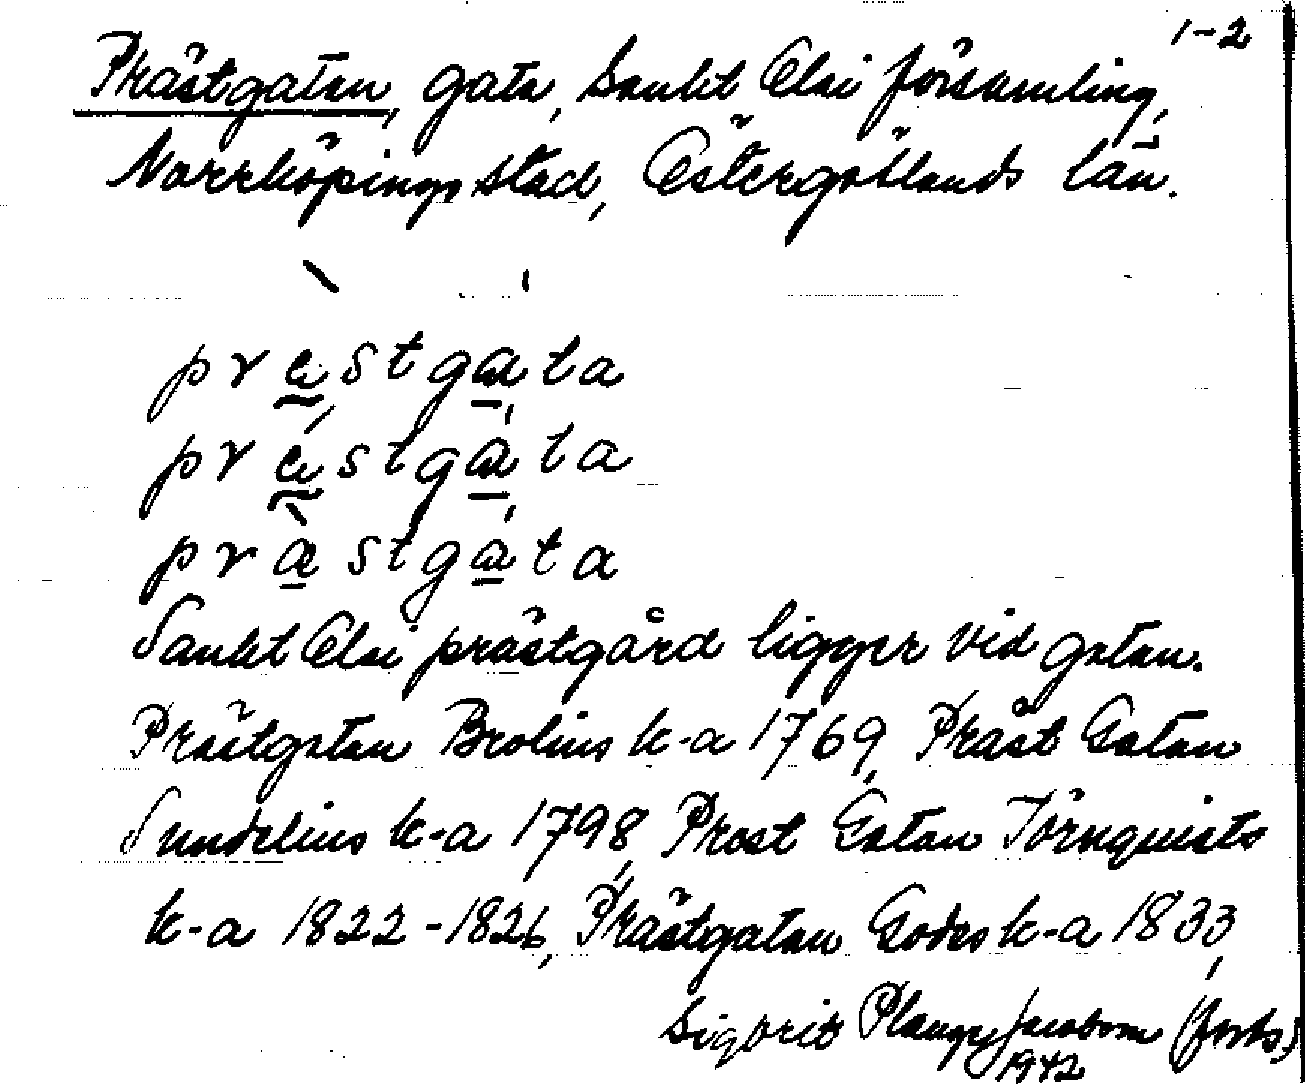 1-2
Prästgatan, gata, Sankt Olai församling,
Norrköpings stad, Östergötlands län.
præstgata
præstgata
præstgata
Sankt Olai prästgård ligger vid gatan.
Prästgatan Brolins k-a 1769, Präst Gatan
Sundelius k-a 1798, Prost Gatan Törnquists
k-a 1822-1826, Prästgatan Godes k-a 1833,
Sigbrit Plangg Jacobson (forts.)
1942